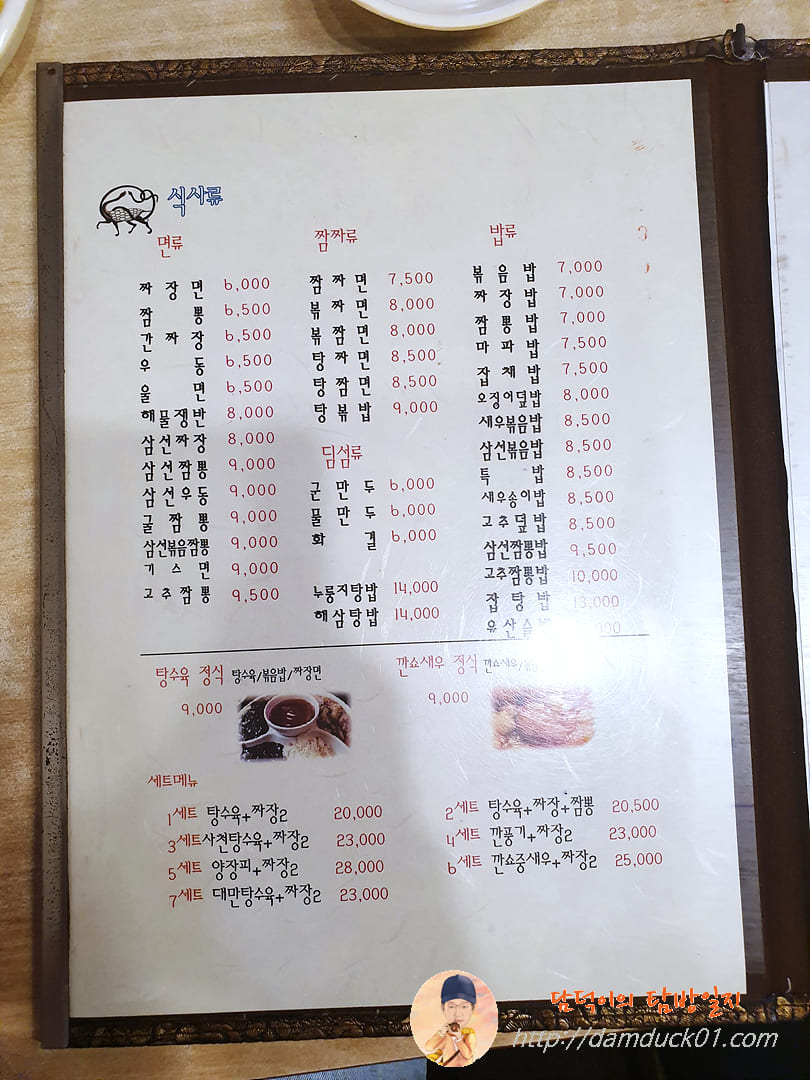 식사류
면류
짜장면 6,000
짬뽕 6,500
간짜장 6,500
우동 6,500
울면 6,500
해물쟁반 8,000
삼선짜장 8,000
삼선짬뽕 9,000
삼선우동 9,000
굴짬뽕 9,000
삼선볶음짬뽕 9,000
기스면 9,000
고추짬뽕 9,500
짬짜류
짬짜면 7,500
볶짜면 8,000
볶짬면 8,000
탕짜면 8,500
탕짬면 8,500
탕볶밥 9,000
딤섬류
군만두 6,000
물만두 6,000
화권 6,000
누룽지탕밥 14,000
해삼탕밥 14,000
밥류
볶음밥 7,000
짜장밥 7,000
짬뽕밥 7,000
마파밥 7,500
잡채밥 7,500
오징어덮밥 8,000
새우볶음밥 8,500
삼선볶음밥 8,500
특밥 8,500
새우송이밥 8,500
고추덮밥 8,500
삼선짬뽕밥 9,500
고추짬뽕밥 10,000
잡탕밥 13,000
유산슬
탕수육 정식 탕수육/볶음밥/짜장면
9,000
깐쇼새우 정식 깐쇼새우/
9,000
세트메뉴
1세트 탕수육+짜장2 20,000
2세트 탕수육+짜장+짬뽕 20,500
3세트 사천탕수육+짜장2 23,000
4세트 깐풍기+짜장2 23,000
5세트 양장피+짜장2 28,000
6세트 깐쇼중새우+짜장2 25,000
7세트 대만탕수육+짜장2 23,000
담덕이의 탐방일지
http://damduck01.com